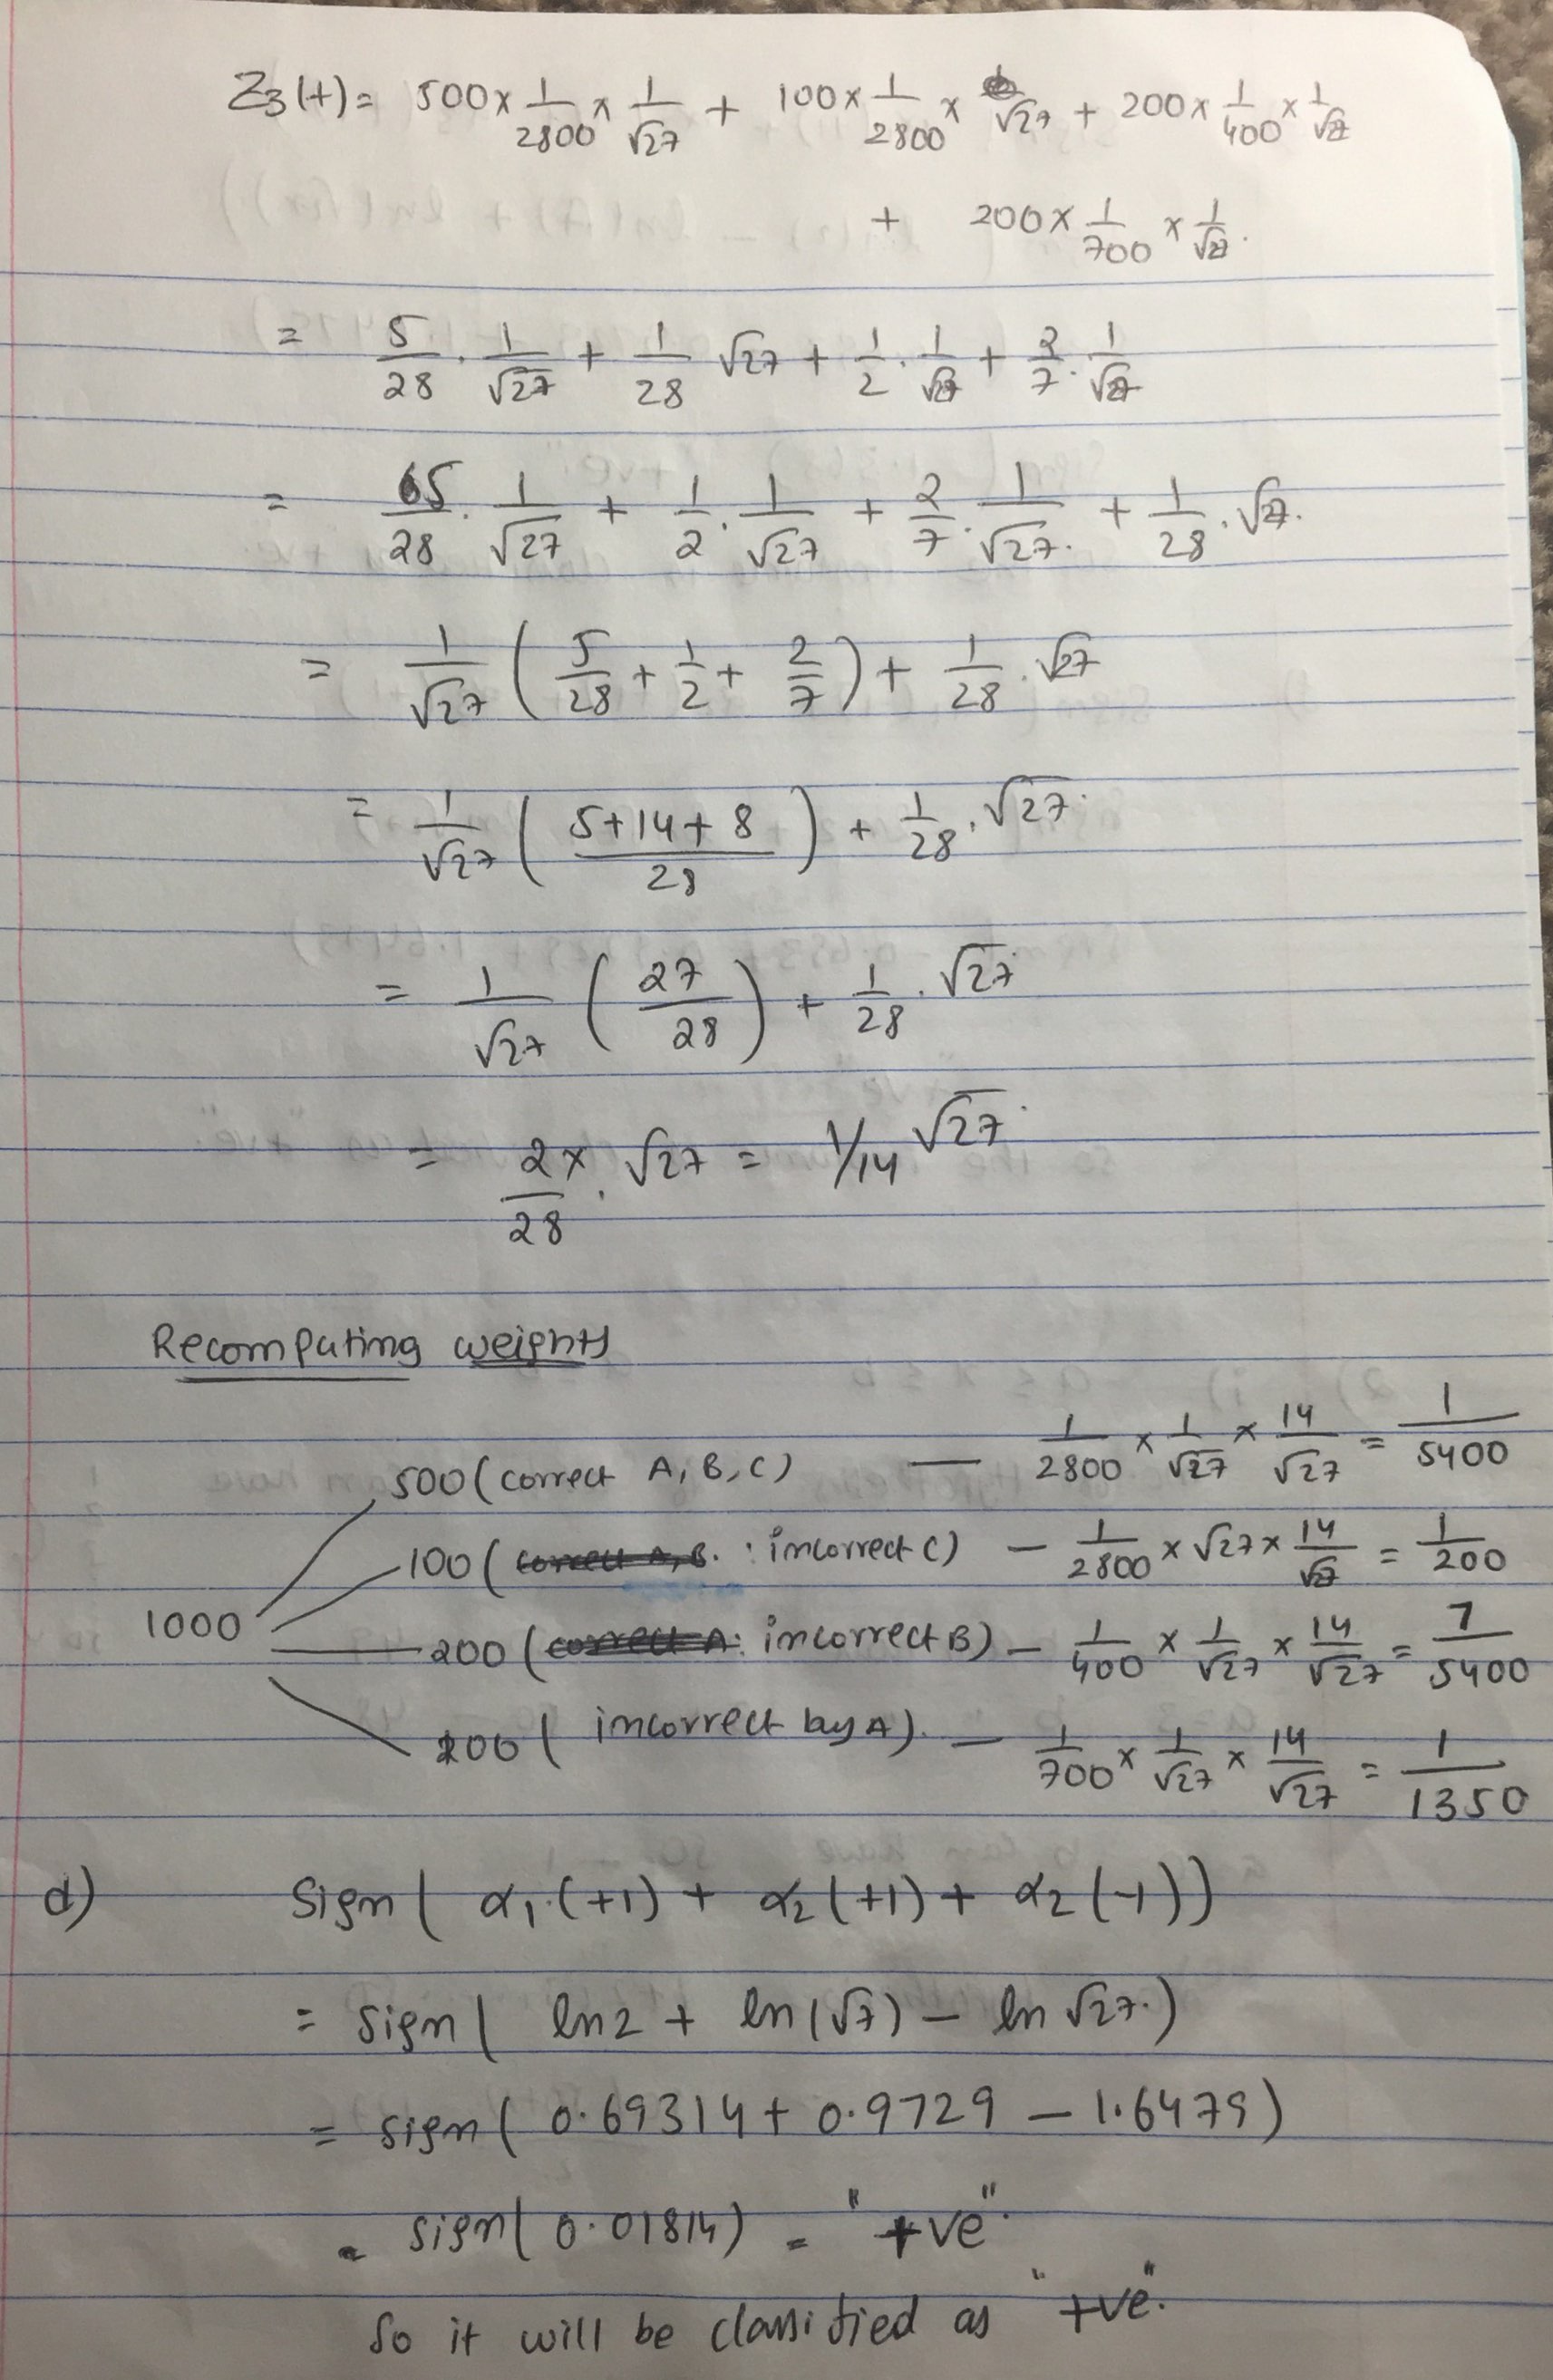 Z₃(+) = 500 × 1/2800 × 1/√27 + 100 × 1/2800 × √27 + 200 × 1/400 × 1/√27
+ 200 × 1/700 × 1/√27.
= 5/28 · 1/√27 + 1/28 √27 + 1/2 · 1/√27 + 2/7 · 1/√27
= 65/28 · 1/√27 + 1/2 · 1/√27 + 2/7 · 1/√27. + 1/28 · √27.
= 1/√27 ( 5/28 + 1/2 + 2/7 ) + 1/28 · √27
= 1/√27 ( (5+14+8)/28 ) + 1/28 · √27
= 1/√27 ( 27/28 ) + 1/28 · √27
= 2×/28 · √27 = 1/14 √27
Recomputing weights
500 (correct A, B, C) — 1/2800 × 1/√27 × 14/√27 = 1/5400
100 (correct A, B. : incorrect C) — 1/2800 × √27 × 14/√27 = 1/200
1000
200 (correct A: incorrect B) — 1/400 × 1/√27 × 14/√27 = 7/5400
200 ( incorrect by A). — 1/700 × 1/√27 × 14/√27 = 1/1350
d) Sign( α₁·(+1) + α₂(+1) + α₂(-1))
= sign( ln2 + ln(√7) – ln √27.)
= sign( 0.69314 + 0.9729 – 1.6479)
= sign( 0.01814) = "+ve".
So it will be classified as "+ve".